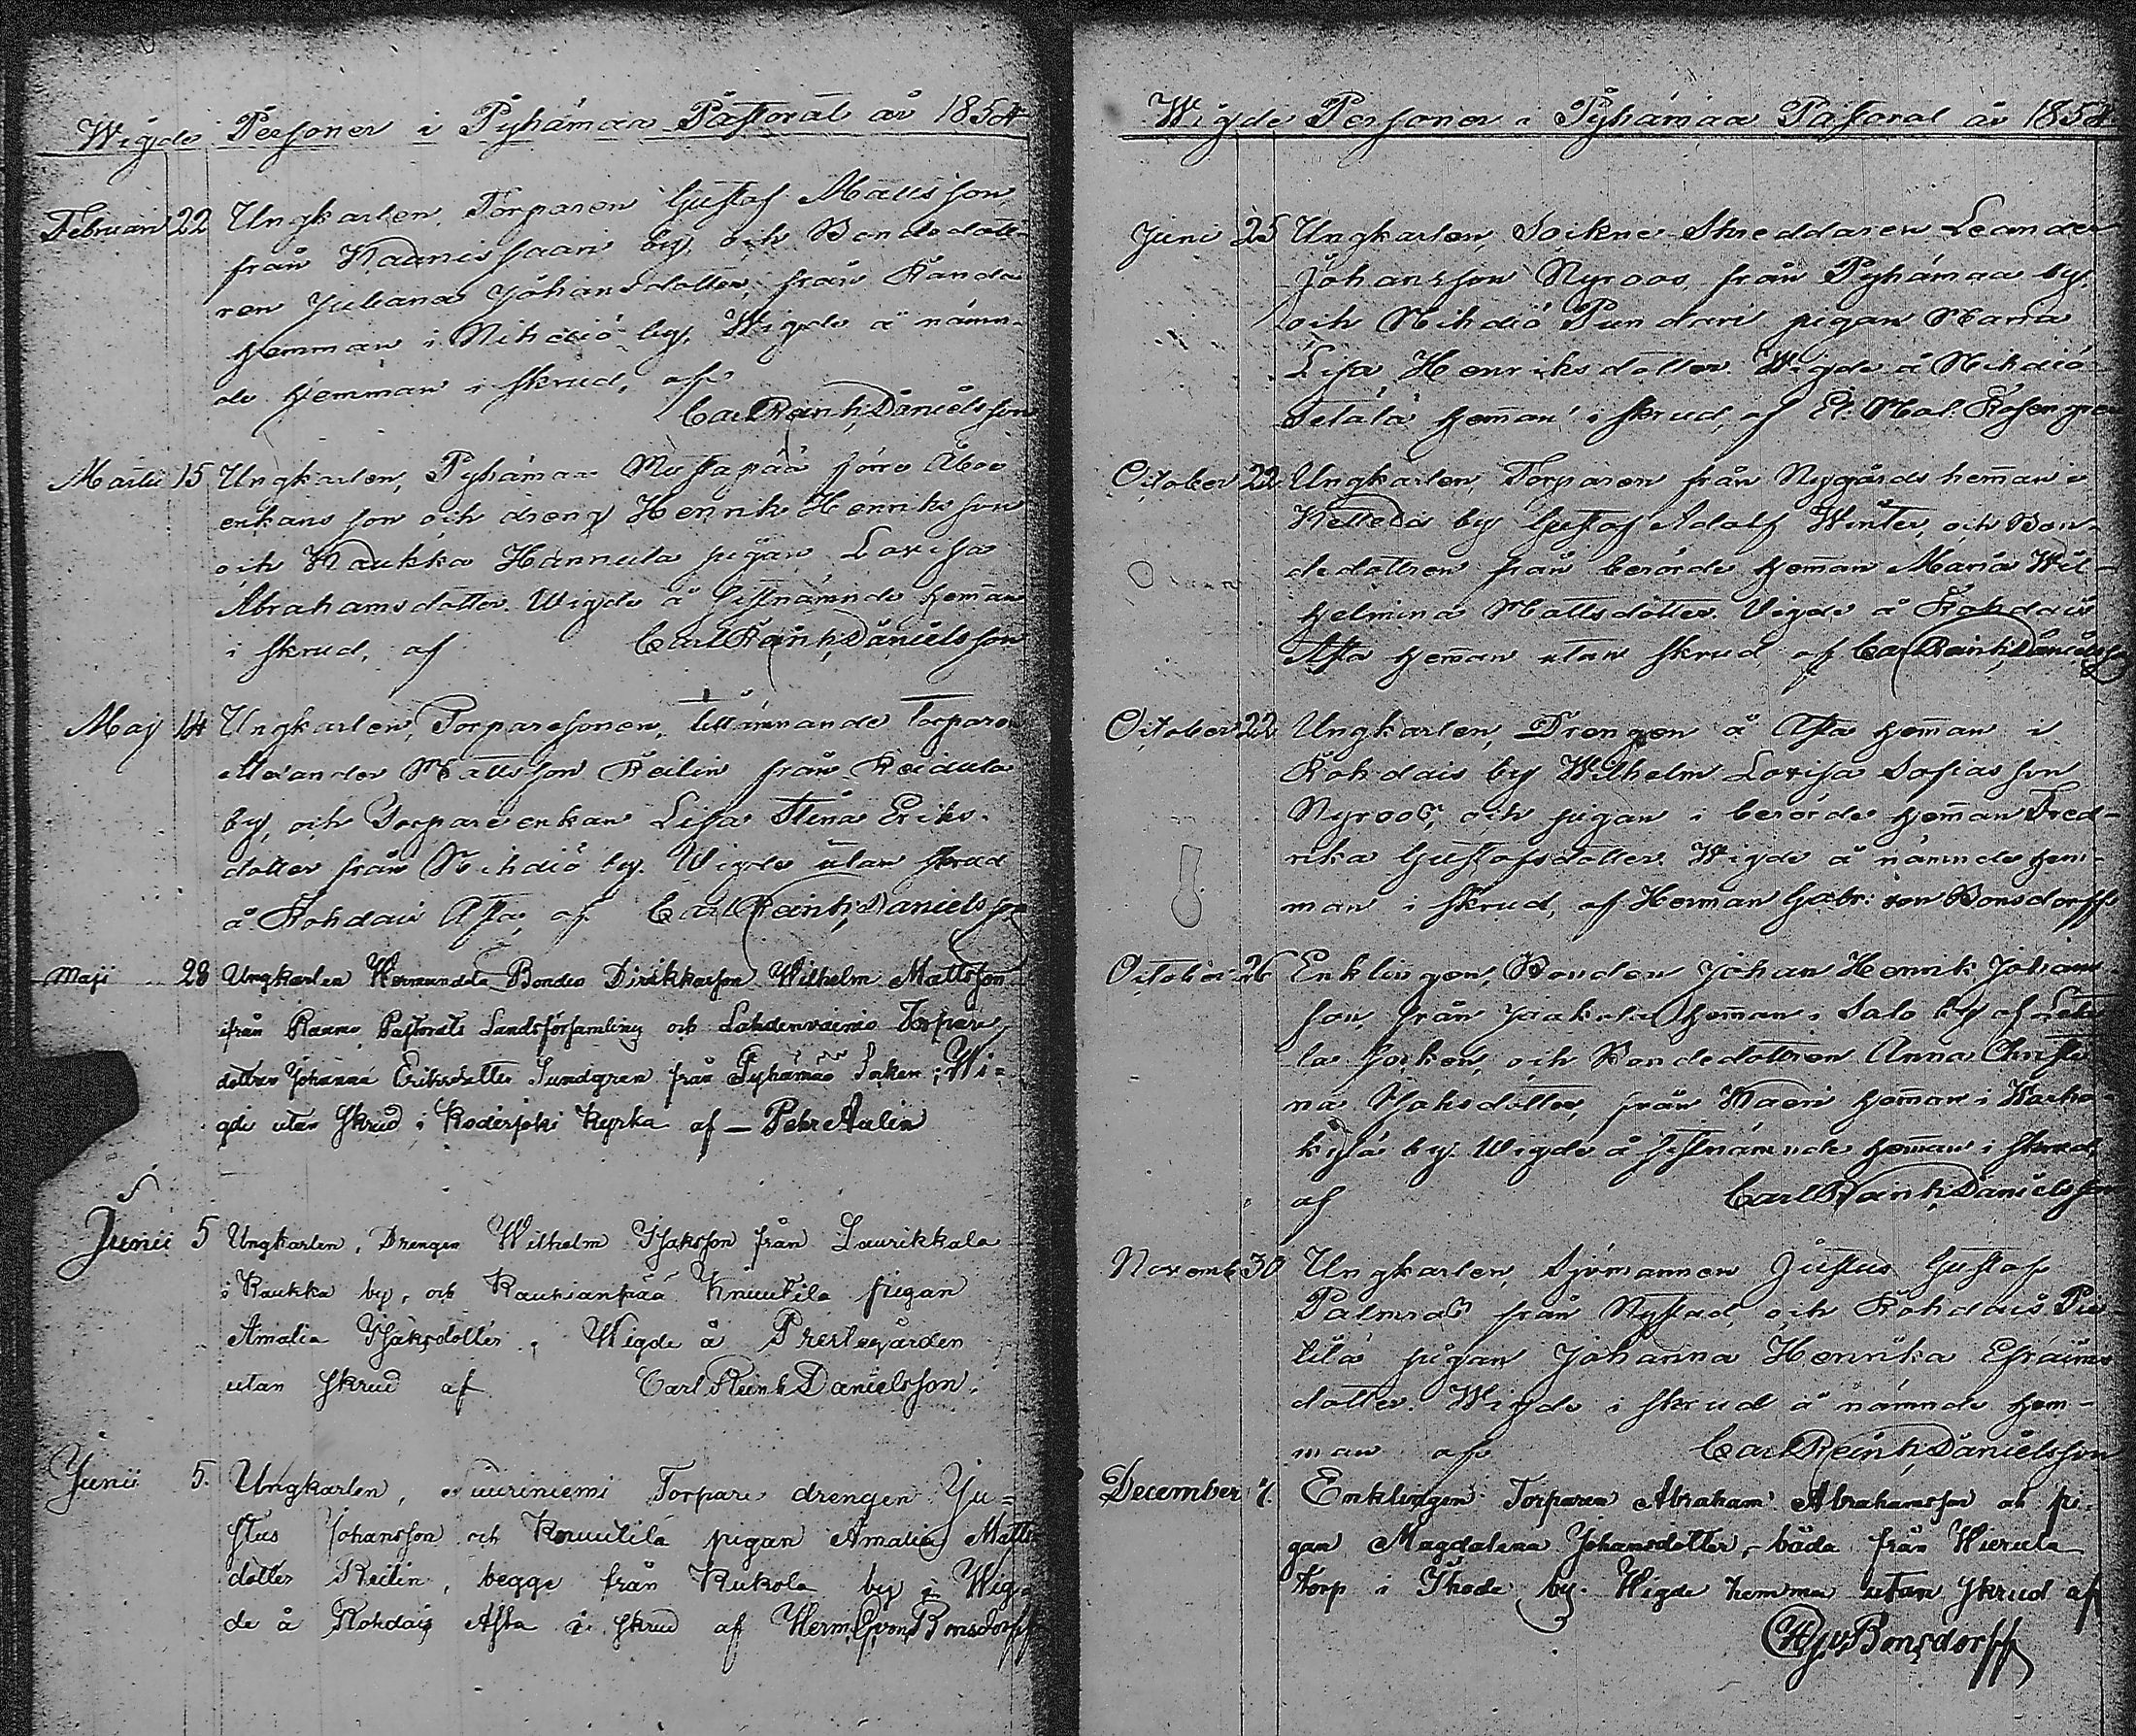 Wigde Personer i Pyhämaa Pastorat år 1854
Februari 22 Ungkarlen, Torparen Gustaf Mattsson
från Kaanissaari by, och Bondedott-
ren Juliana Johansdotter, från Randa
Hemman i Nihdiö by. Wigde å nämn-
de Hemman i skrud, af
Carl Reinh. Danielsson
Martii 15 Ungkarlen, Pyhämaa Mustapää förre Åboe
enkans son och dreng Henrik Henriksson
och Kaukka Hannula pigan Lovisa
Abrahamsdotter. Wigde å sistnämnde Hemman
i skrud, af Carl Reinh. Danielsson
Maj 14 Ungkarlen, Torparesonen, tillämnande Torparen
Alexander Mattsson Reilin från Reidula
by, och Torpareenkan Lisa Stina Eriks-
dotter från Nihdiö by. Wigde utan skrud
å Rohdais Asta, af Carl Reinh. Danielsson
Maji 28 Ungkarlen Bondes Wilhelm Mattsson
ifrån Raumo Pastorats Landsförsamling och Lahdenvainio Torpare
dottren Johanna Eriksdotter Sundgren från Pyhämaa Socken; Wi-
gde utan Skrud i Kodisjoki Kyrka af — Petr Aulin
Junii 5 Ungkarlen, Drengen Wilhelm Isaksson från Laurikkala
i Kaukka by, och Rauhianpää Knuutila pigan
Amalia Isaksdotter. Wigde å Prestegården
utan Skrud af Carl Reinh Danielsson.
Junii 5. Ungkarlen, Suuriniemi Torpare drengen Ju=
stus Johansson och Knuutila pigan Amalia Matts
dotter Reilin, begge från Kukola by; Wig-
de å Rohdais Asta i skrud af Herm. G. von Bonsdorff
Wigde Personer i Pyhämaa Pastorat år 1854
Juni 25 Ungkarlen, Sockne Skreddaren Leander
Johansson Nyroos från Pyhämaa by,
och Nihdiö Pundari pigan Maria
Lisa Henriksdotter. Wigde å Nihdiö
hemman i skrud, af El. Mat. Rosengren
October 22 Ungkarlen, Torparen från Nygårds hemman i
by Gustaf Adolf Winter, och Bon-
dedottren från berörde hemman Maria Wil-
helmina Mattsdotter. Vigde å Rohdais
Asta hemman utan skrud af Carl Reinh. Danielsson
October 22 Ungkarlen, Drengen å Asta hemman i
Rohdais by Wilhelm Lovisa Sofiasson
Nyroos, och pigan i berörde hemman Fred-
rika Gustafsdotter. Wigde å nämnde hem-
man i skrud, af Herman Gabr: von Bonsdorff
October 26 Enklingen, Bonden Johan Henrik Johans
son, från Jaakola hemman i Salo by af Leti-
la Socken, och Bondedottren Anna Christi-
na Isaksdotter, från Waari hemman i Warho-
kylä by. Wigde å sistnämnde hemman i skrud,
af Carl Reinh. Danielsson
Novemb. 30 Ungkarlen, Sjömannen Justus Gustaf
Palmros från Nystad, och Rohdais Pie-
tilä pigan Johanna Henrika Efraims
dotter. Wigde i skrud å nämnde hem-
man af Carl Reinh. Danielsson
December 7. Enklingen Torparen Abraham Abrahamsson och pi-
gan Magdalena Johansdotter, båda från Wierula
torp i Ihode by. Wigde hemma utan skrud af
HGvBonsdorff